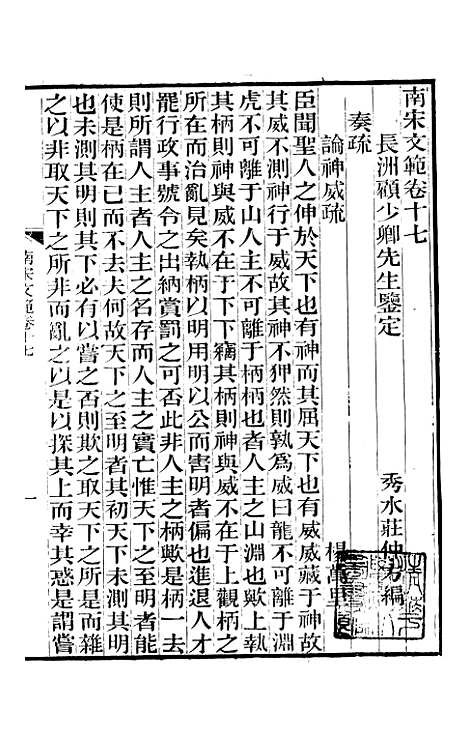 南宋文範卷十七
長洲顧少卿先生鑒定
秀水莊仲方編
奏疏
論神威疏
楊萬里
臣聞聖人之伸於天下也有神而其屈天下也有威威藏于神故
其威不測神行于威故其神不狎然則孰為威曰龍不可離于淵
虎不可離于山人主不可離于柄柄也者人主之山淵也歟上執
其柄則神與威不在于下下竊其柄則神與威不在于上觀柄之
所在而治亂見矣執柄以明用明以公而害明者偏也進退人才
罷行政事號令之出納賞罰之可否此非人主之柄歟是柄一去
則所謂人主者人主之名存而人主之實亡惟天下之至明者能
使是柄在已而不去夫何故天下之至明者其初天下未測其明
也未測其明則其下必有以嘗之否則欺之取天下之所是而雜
之以非取天下之所非而亂之以是以探其上而幸其惑是謂嘗
南宋文範卷十七
一